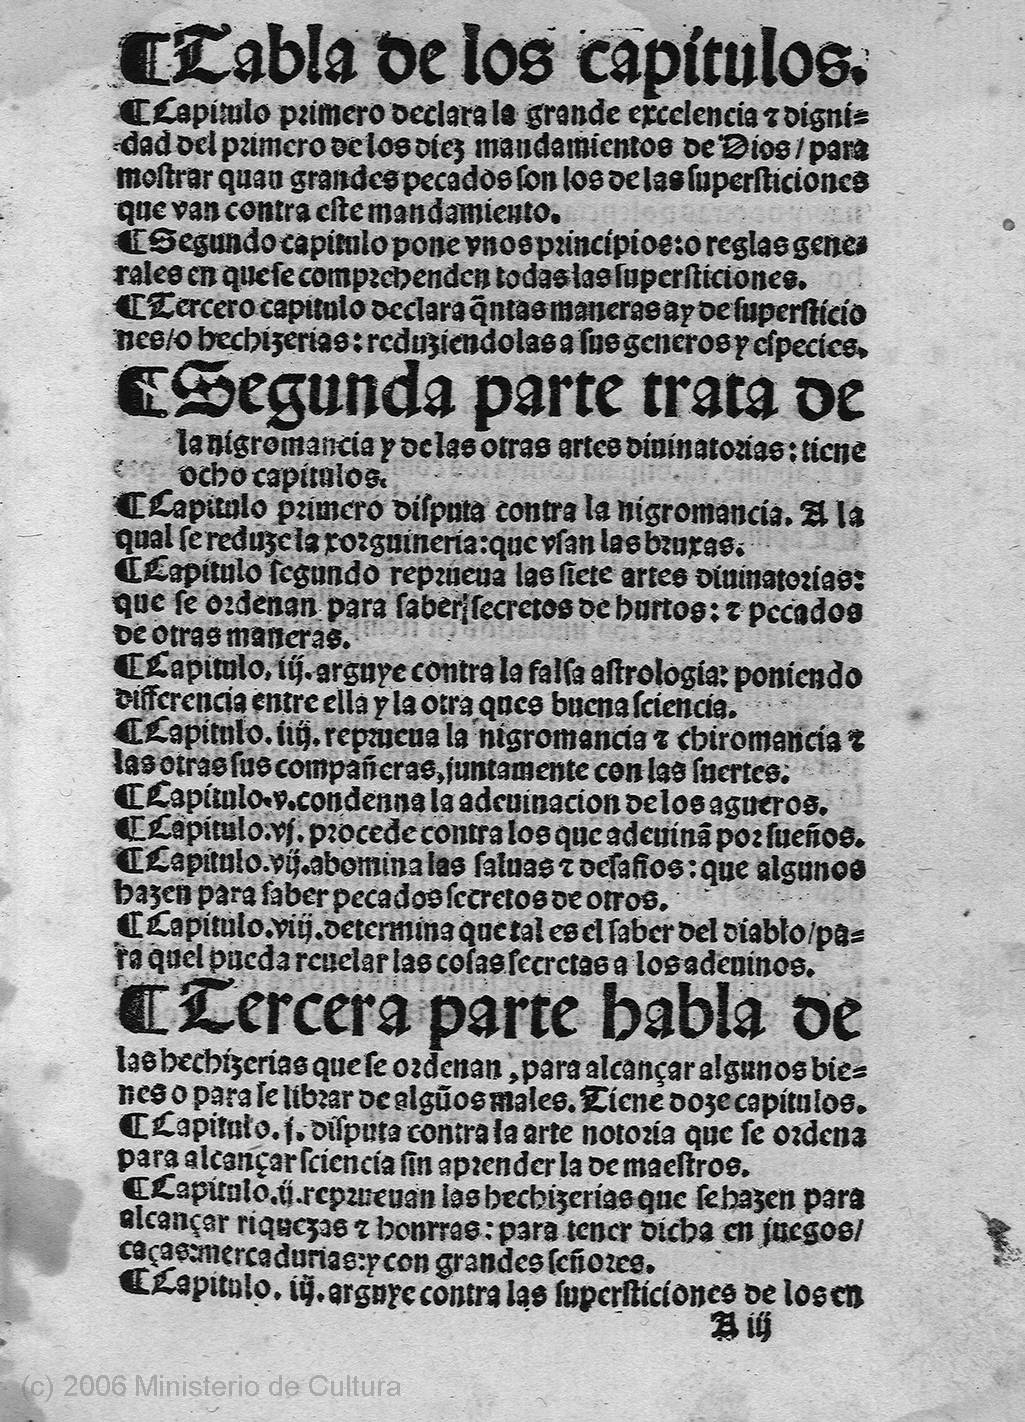 ¶Tabla de los capitulos.
¶Capitulo primero declara la grande excelencia ⁊ digni=
dad del primero de los diez mandamientos de Dios/para
mostrar quan grandes pecados son los de las supersticiones
que van contra este mandamiento.
¶Segundo capitulo pone vnos principios:o reglas gene=
rales en que se comprehenden todas las supersticiones.
¶Tercero capitulo declara q̃ntas maneras ay de supersticio
nes/o hechizerias: reduziendolas a sus generos y especies.
¶Segunda parte trata de
la nigromancia y de las otras artes diuinatorias: tiene
ocho capitulos.
¶Capitulo primero disputa contra la nigromancia. A la
qual se reduze la xorguineria:que vsan las bruxas.
¶Capitulo segundo reprueua las siete artes diuinatorias:
que se ordenan para saber secretos de hurtos: ⁊ pecados
de otras maneras.
¶Capitulo. iij. arguye contra la falsa astrologia: poniendo
differencia entre ella y la otra ques buena sciencia.
¶Capitulo. iiij. reprueua la nigromancia ⁊ chiromancia ⁊
las otras sus compañeras, juntamente con las suertes.
¶Capitulo.v.condenna la adeuinacion de los agueros.
¶Capitulo.vj. procede contra los que adeuinã por sueños.
¶Capitulo.vij.abomina las saluas ⁊ desafios: que algunos
hazen para saber pecados secretos de otros.
¶Capitulo.viij.determina que tal es el saber del diablo/pa=
ra quel pueda reuelar las cosas secretas a los adeuinos.
¶Tercera parte habla de
las hechizerias que se ordenan , para alcançar algunos bie=
nes o para se librar de algũos males. Tiene doze capitulos.
¶Capitulo. j. disputa contra la arte notoria que se ordena
para alcançar sciencia sin aprender la de maestros.
¶Capitulo.ij.reprueuan las hechizerias que se hazen para
alcançar riquezas ⁊ honrras: para tener dicha en juegos/
caças:mercadurias:y con grandes señores.
¶Capitulo. iij. arguye contra las supersticiones de los en
A iij
(c) 2006 Ministerio de Cultura